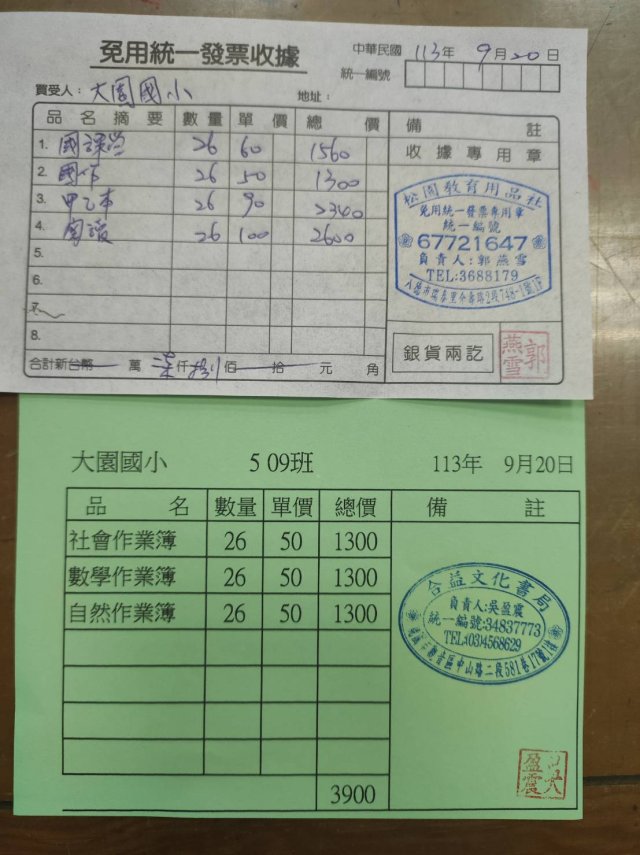 免用統一發票收據
中華民國 113年 9月20日
統一編號
買受人：大園國小 地址：
品名摘要 數量 單價 總價 備註
1. 國課堂 26 60 1560
收據專用章
2. 國作 26 50 1300
3. 甲乙本 26 90 2340
4. 100 26 2600
5.
6.
7.
8.
松園教育用品社
免用統一發票專用章
統一編號
67721647
負責人：郭燕雪
TEL:3688179
八德市瑞泰里介壽路2段748-1號1F
銀貨兩訖
郭燕雪
合計新台幣 萬 柒仟捌佰 拾 元 角
大園國小 5 09班 113年 9月20日
品名 數量 單價 總價 備註
社會作業簿 26 50 1300
數學作業簿 26 50 1300
自然作業簿 26 50 1300
3900
合益文化書局
負責人:吳盈震
統一編號:34837773
TEL:(03)4568629
觀音區中山路二段581巷17號1樓
吳盈震